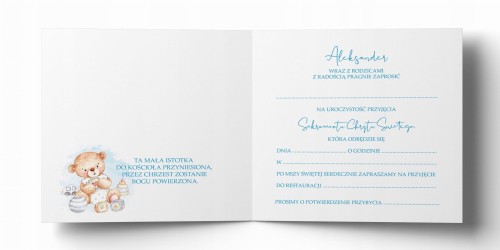 TA MAŁA ISTOTKA
DO KOŚCIOŁA PRZYNIESIONA,
PRZEZ CHRZEST ZOSTANIE
BOGU POWIERZONA.
Aleksander
WRAZ Z RODZICAMI
Z RADOŚCIĄ PRAGNIE ZAPROSIĆ
NA UROCZYSTOŚĆ PRZYJĘCIA
Sakramentu Chrztu Świętego,
KTÓRA ODBĘDZIE SIĘ
DNIA O GODZINIE
W
PO MSZY ŚWIĘTEJ SERDECZNIE ZAPRASZAMY NA PRZYJĘCIE
DO RESTAURACJI
PROSIMY O POTWIERDZENIE PRZYBYCIA